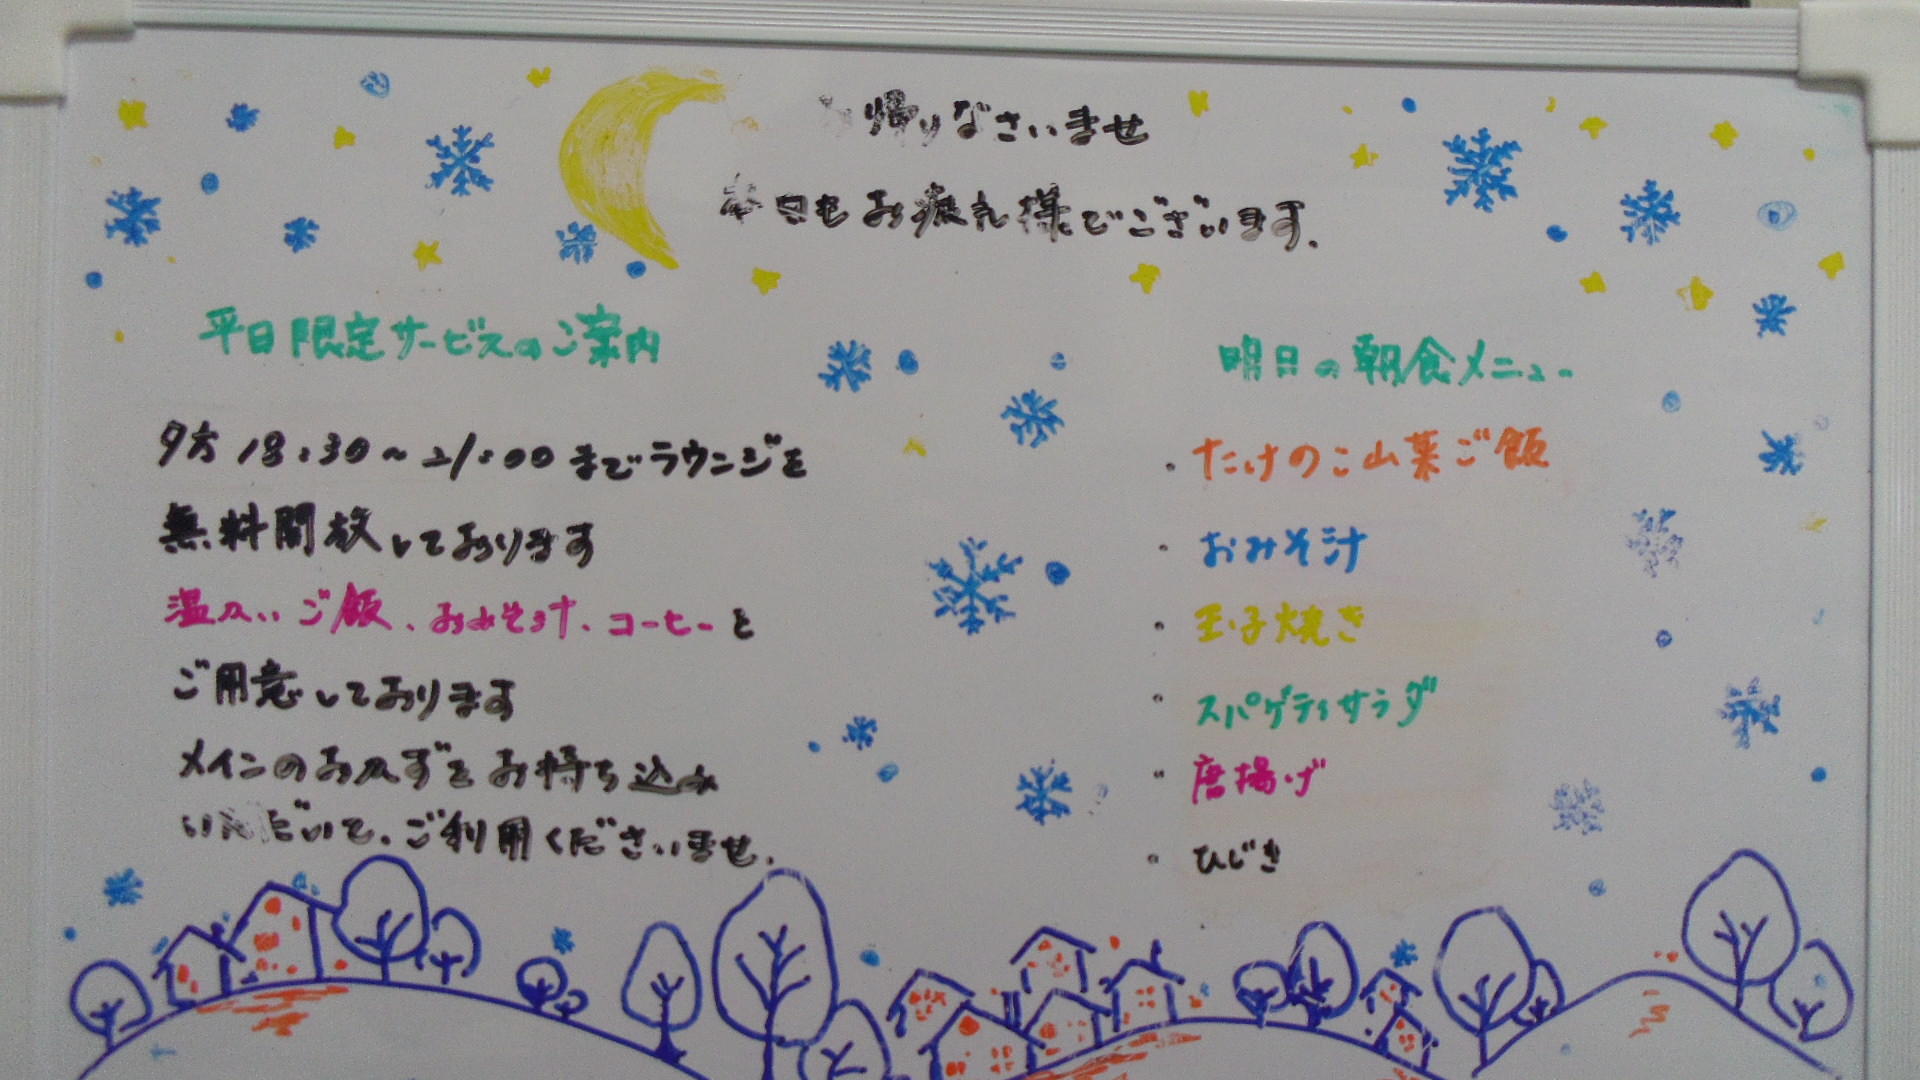 帰りなさいませ
本日もお疲れ様でございます.
平日限定サービスのご案内
夕方 18:30～21:00 までラウンジを
無料開放しております
温かいご飯、おみそ汁、コーヒーを
ご用意しております
メインのおかずをお持ち込み
いただいて、ご利用くださいませ.
明日の朝食メニュー
・たけのこ山菜ご飯
・おみそ汁
・玉子焼き
・スパゲティサラダ
・唐揚げ
・ひじき